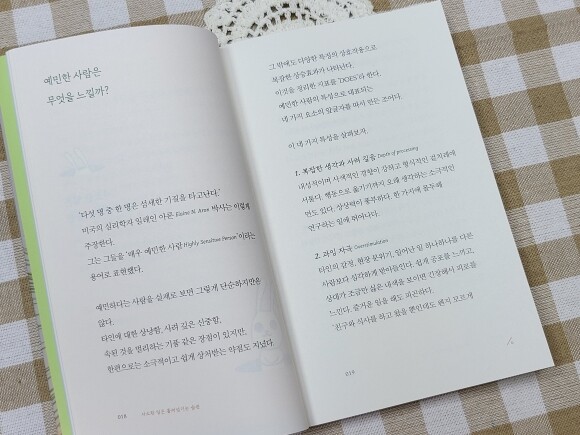 예민한 사람은
무엇을 느낄까?
'다섯 명 중 한 명은 섬세한 기질을 타고난다.'
미국의 심리학자 일레인 아론 Elaine N. Aron 박사는 이렇게
주장한다.
그는 그들을 '매우 예민한 사람 Highly Sensitive Person'이라는
용어로 표현했다.
예민하다는 사람을 실제로 보면 그렇게 단순하지만은
않다.
타인에 대한 상냥함, 사려 깊은 신중함,
속된 것을 멀리하는 기품 같은 장점이 있지만,
한편으로는 소극적이고 쉽게 상처받는 약점도 지녔다.
018
그 밖에도 다양한 특징의 상호작용으로
복잡한 상승효과가 나타난다.
이것을 정리한 지표를 'DOES'라 한다.
예민한 사람의 특성으로 대표되는
네 가지 요소의 앞글자를 따서 만든 조어다.
이 네 가지 특징을 살펴보자.
1. 복잡한 생각과 사려 깊음 Depth of processing
내성적이며 사색적인 경향이 강하고 형식적인 겉치레에
서툴다. 행동으로 옮기기까지 오래 생각하는 소극적인
면도 있다. 상상력이 풍부하다. 한 가지에 몰두해
연구하는 일에 뛰어나다.
2. 과잉 자극 Overstimulation
타인의 감정, 현장 분위기, 일어난 일 하나하나를 다른
사람보다 심각하게 받아들인다. 쉽게 공포를 느끼고,
상대가 조금만 싫은 내색을 보이면 긴장해서 피로를
느낀다. 즐거운 일을 해도 피곤하다.
'친구와 식사를 하고 왔을 뿐인데도 왠지 모르게
019